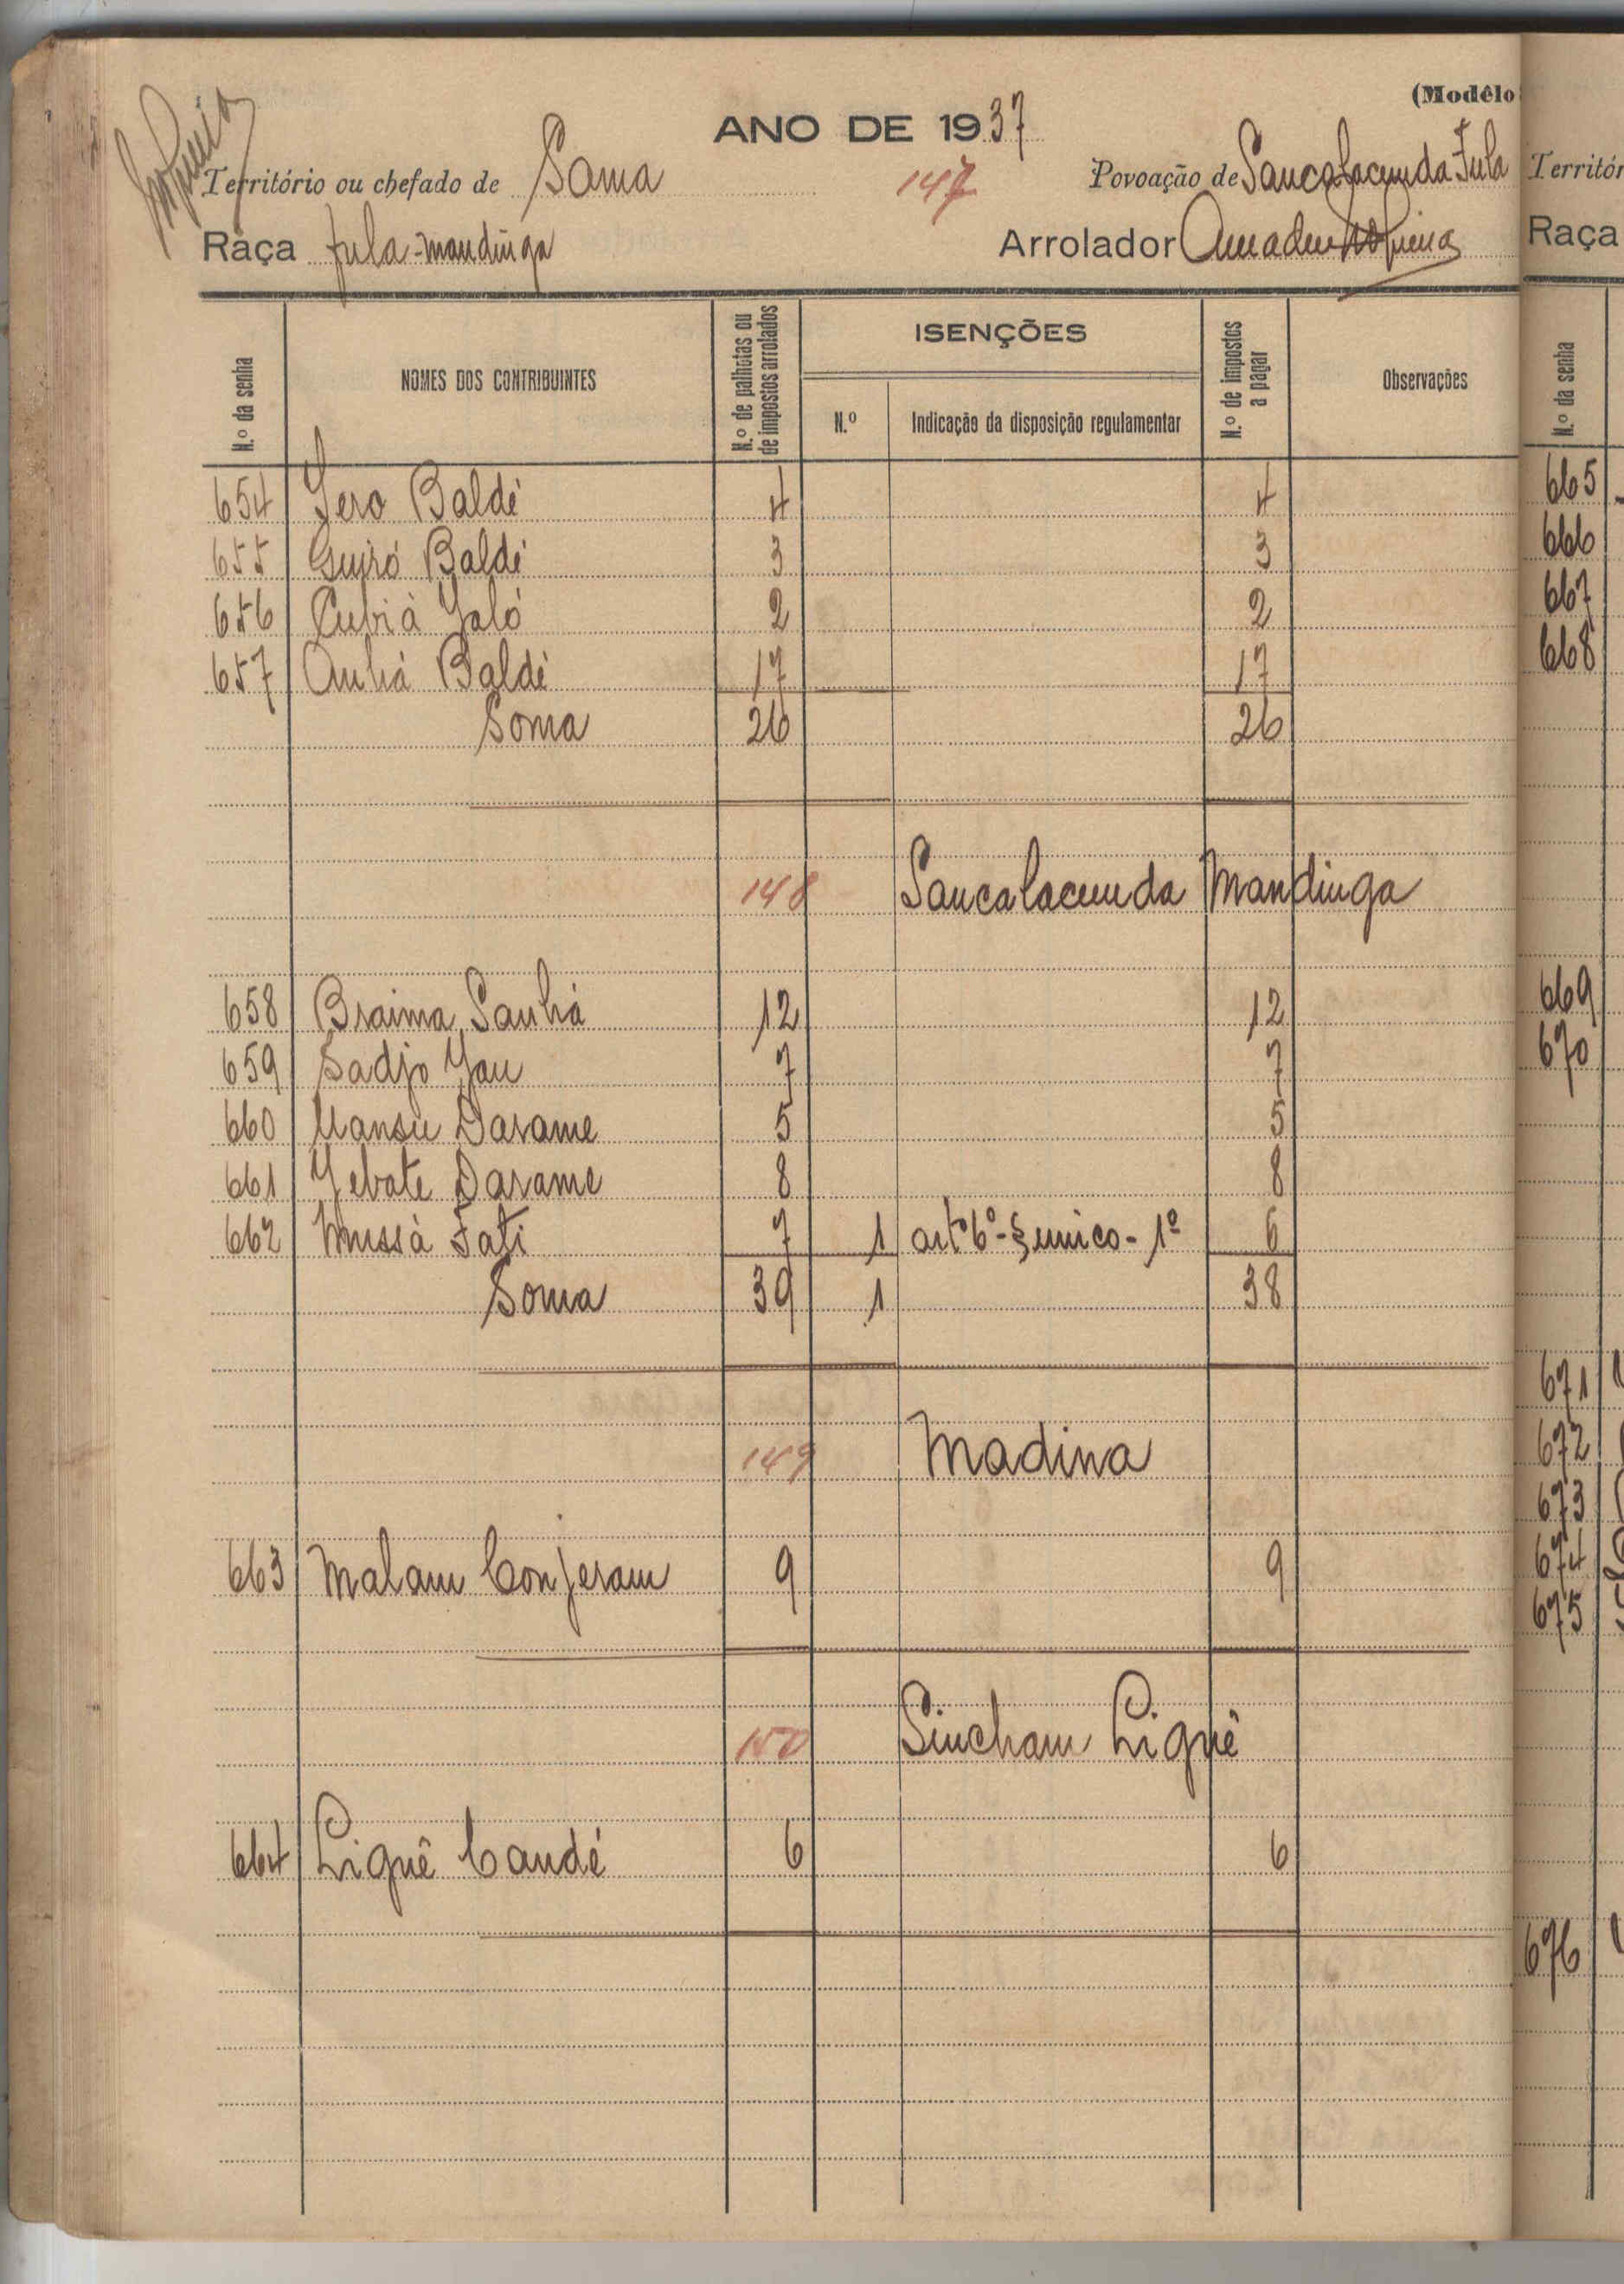 (Modêlo
ANO DE 1937
Território ou chefado de Sama 147 Povoação de Sancalacunda Fula
Raça Fula-mandinga Arrolador Amadeu Nogueira
N.º da senha
NOMES DOS CONTRIBUINTES
N.º de palhotas ou de impostos arrolados
ISENÇÕES
N.º
Indicação da disposição regulamentar
N.º de impostos a pagar
Observações
654 Iero Baldé 4 4
655 Guiró Baldé 3 3
656 Cubià Jaló 2 2
657 Anhá Baldé 17 17
Soma 26 26
148 Sancalacunda Mandinga
658 Braima Sanhá 12 12
659 Sadjo Jau 7 7
660 Mansu Darame 5 5
661 Jebate Darame 8 8
662 Mussà Fati 7 1 artº 6º - § unico - 1º 6
Soma 39 1 38
149 Madina
663 Malam Conjeram 9 9
150 Sincham Liguê
664 Liguê Candé 6 6
Territór
Raça
N.º da senha
665
666
667
668
669
670
671
672
673
674
675
676